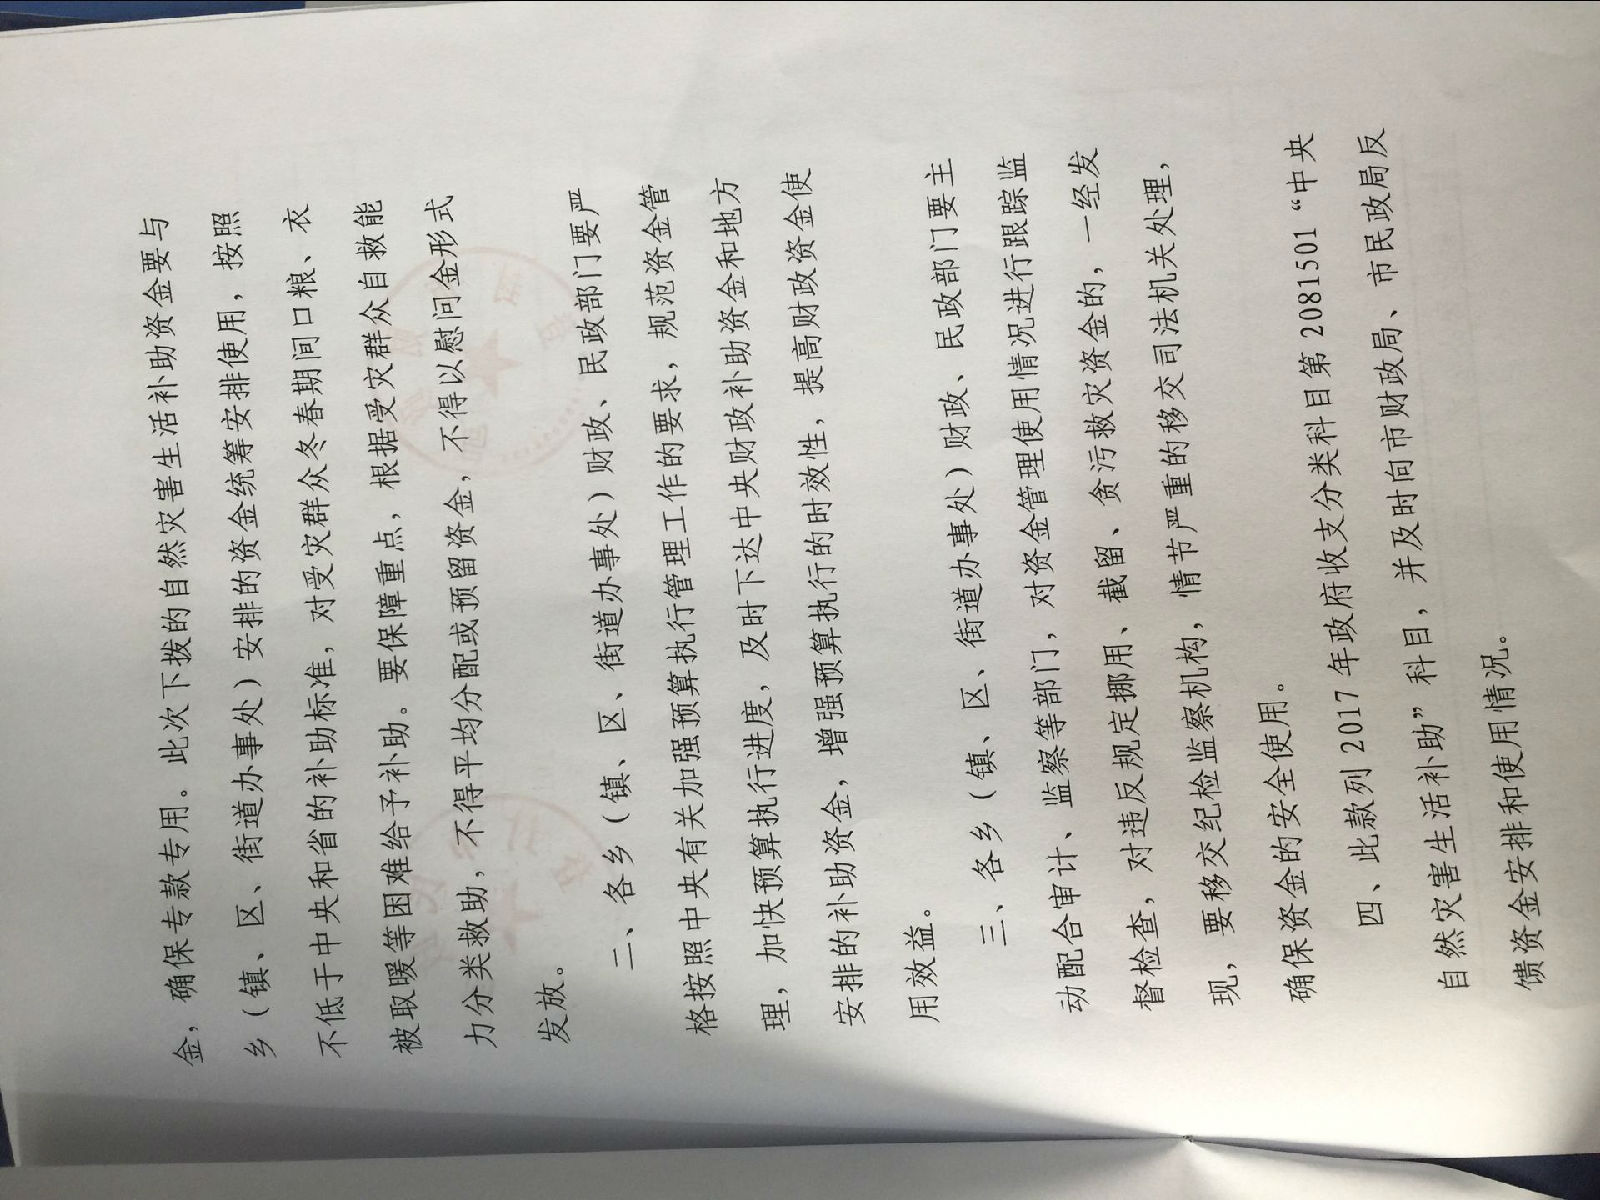 金，确保专款专用。此次下拨的自然灾害生活补助资金要与
乡（镇、区、街道办事处）安排的资金统筹安排使用，按照
不低于中央和省的补助标准，对受灾群众冬春期间口粮、衣
被取暖等困难给予补助。要保障重点，根据受灾群众自救能
力分类救助，不得平均分配或预留资金，不得以慰问金形式
发放。
二、各乡（镇、区、街道办事处）财政、民政部门要严
格按照中央有关加强预算执行管理工作的要求，规范资金管
理，加快预算执行进度，及时下达中央财政补助资金和地方
安排的补助资金，增强预算执行的时效性，提高财政资金使
用效益。
三、各乡（镇、区、街道办事处）财政、民政部门要主
动配合审计、监察等部门，对资金管理使用情况进行跟踪监
督检查，对违反规定挪用、截留、贪污救灾资金的，一经发
现，要移交纪检监察机构，情节严重的移交司法机关处理，
确保资金的安全使用。
四、此款列 2017 年政府收支分类科目第 2081501 “中央
自然灾害生活补助” 科目，并及时向市财政局、市民政局反
馈资金安排和使用情况。